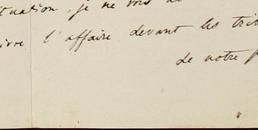 tuation, je ne vois
ivre l'affaire devant les
de notre